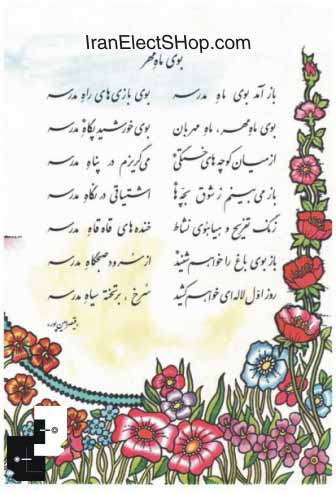 IranElectSHop.com
بوی ماه مهر
باز آمد بوی ماه مدرسه بوی بازی‌های راه مدرسه
بوی ماه مهر، ماه مهربان بوی خورشید پگاه مدرسه
از میان کوچه‌های خستگی می‌گریزم در پناه مدرسه
باز می‌بینم ز شوق بچه‌ها اشتیاقی در نگاه مدرسه
زنگ تفریح و هیاهوی نشاط خنده‌های قاه قاه مدرسه
باز بوی باغ را خواهم شنید از سرود صبحگاه مدرسه
روز اول لاله‌ای خواهم کشید سرخ، بر تخته سیاه مدرسه
قیصر امین‌پور